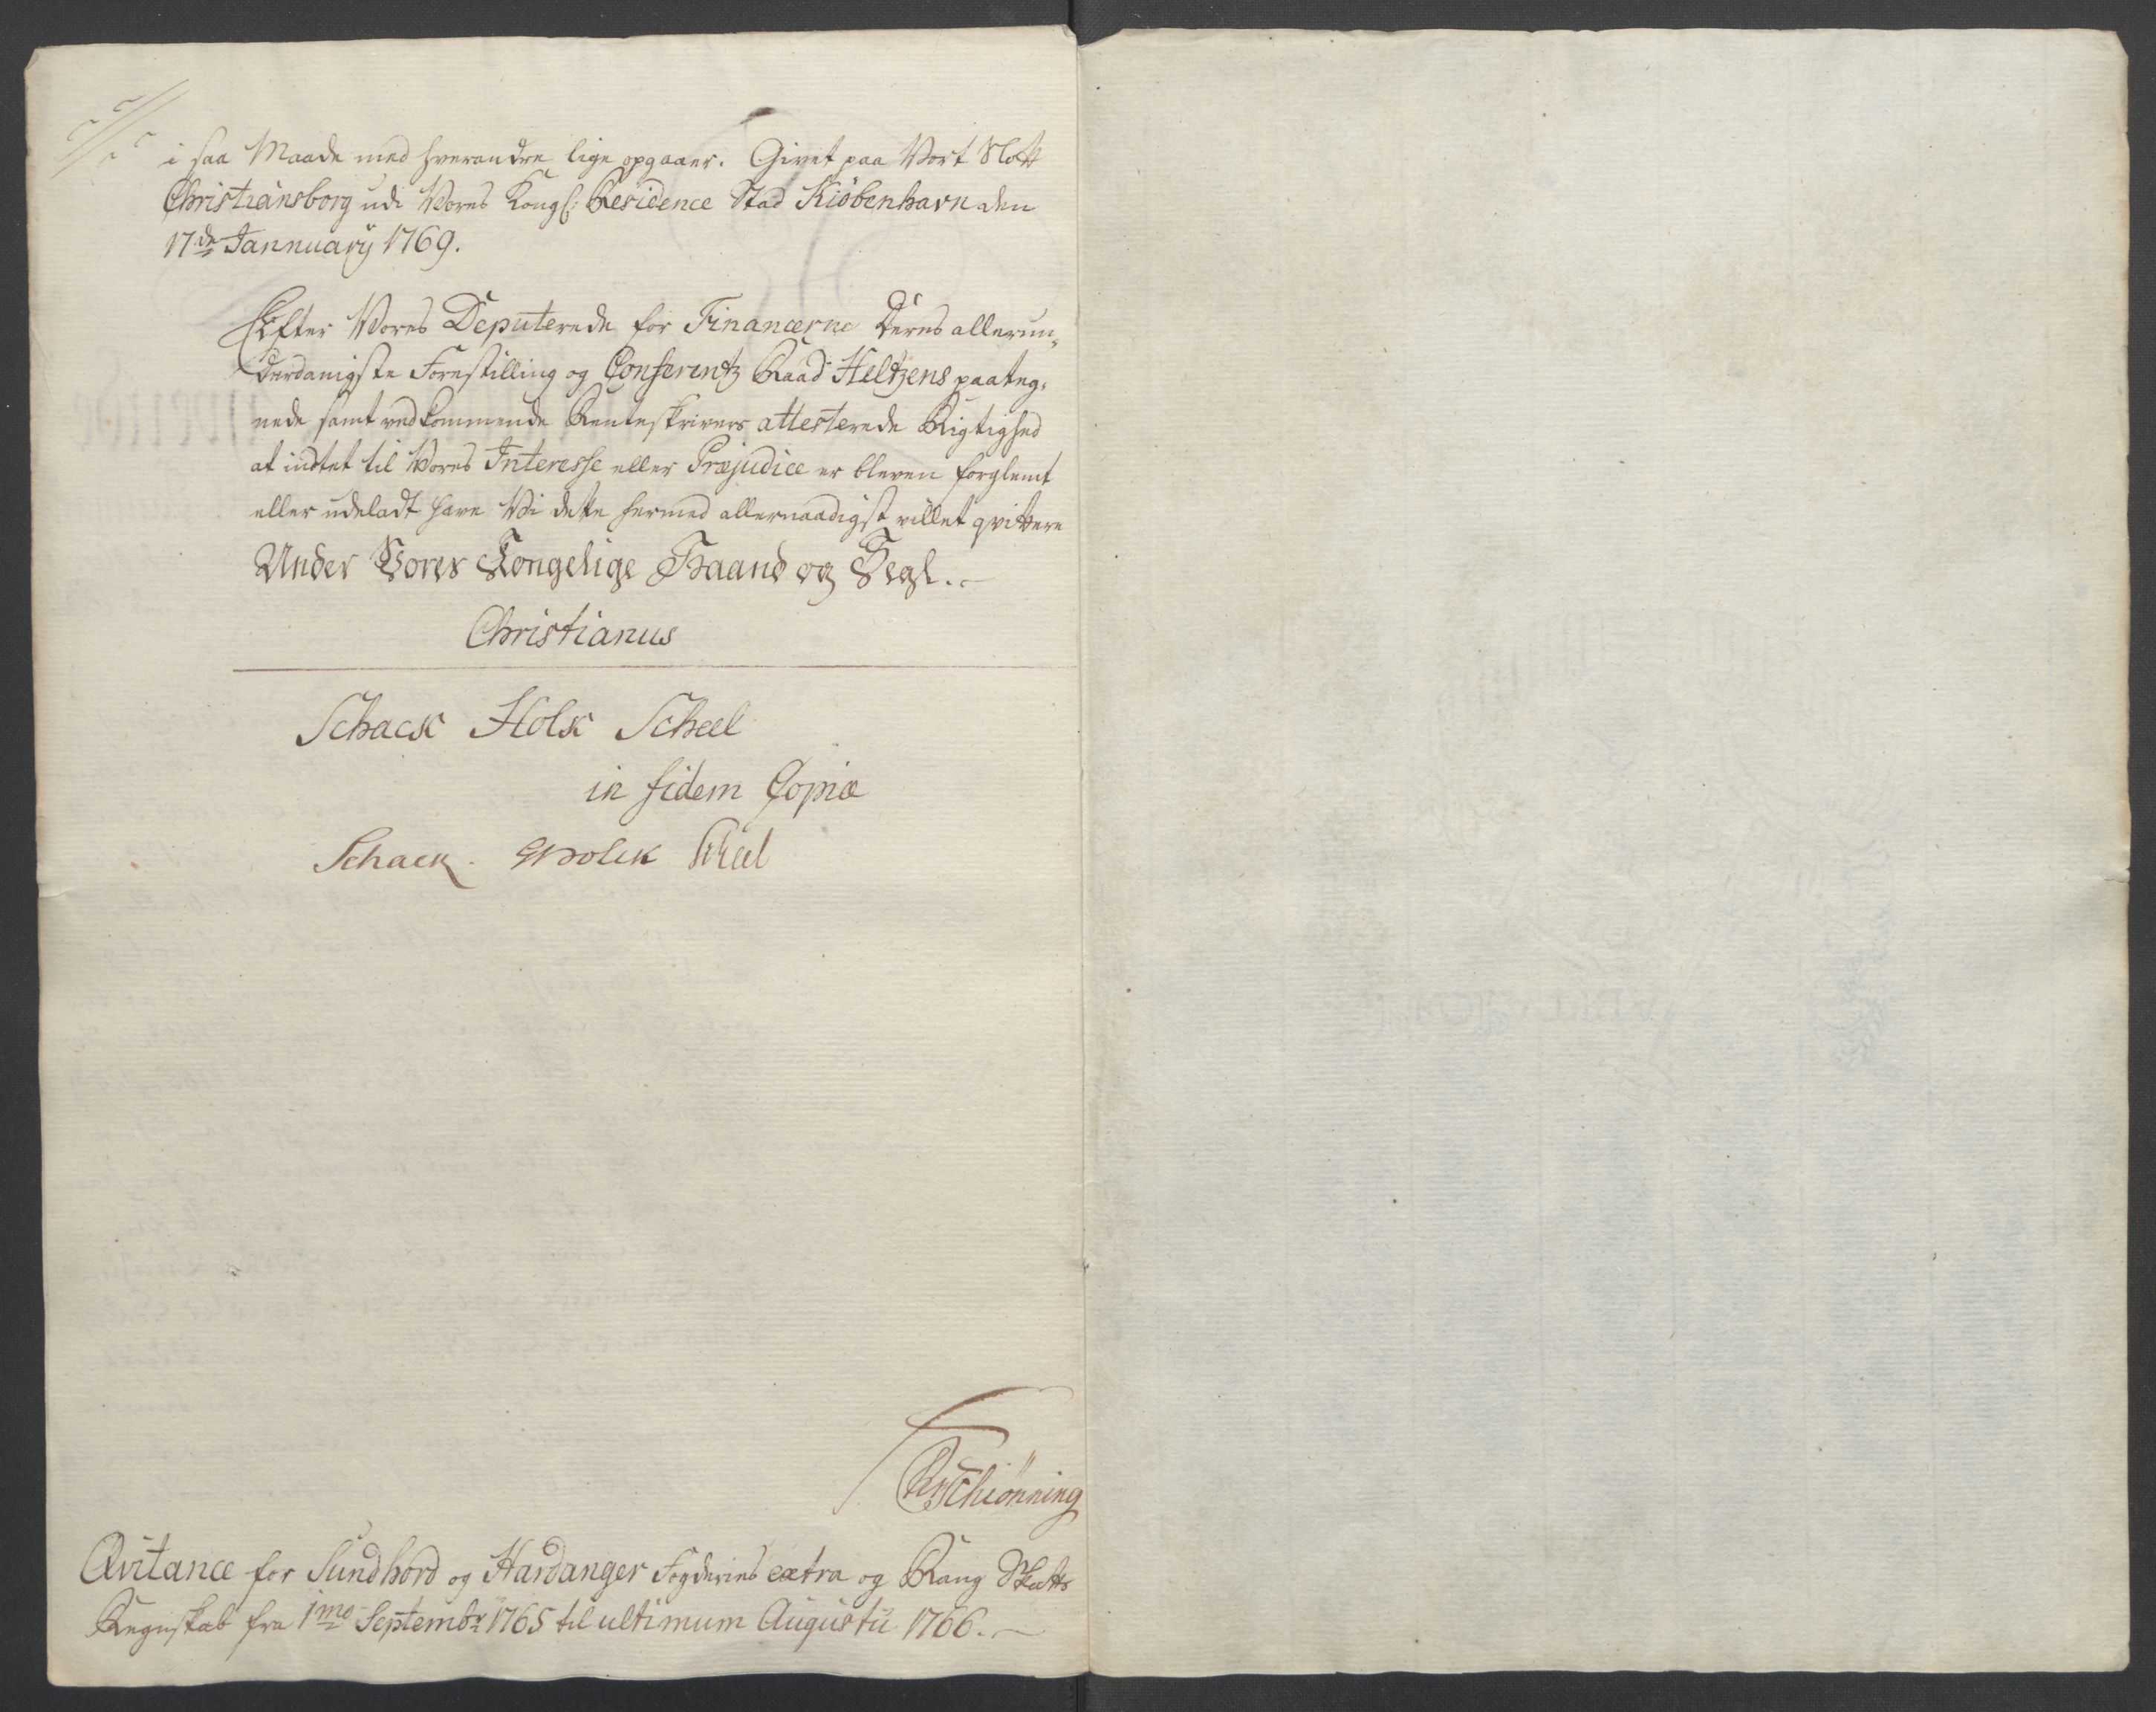 i saa Maade med hverandre lige opgaaer. Givet paa Vort Slott
Christiansborg udi Vores Kongl: Residence Stad Kiöbenhavn den
17de Jannuarÿ 1769.
Efter Vores Deputerede for Financerne Deres allerun-
derdanigste Forestilling og Conferentz Raad Heltzens paateg-
nede samt vedkommende Renteskrivers attesterede Rigtighed
at indtet til Vores Interesse eller Præjudice er bleven forglemt
eller udeladt have Vi dette hermed allernaadigst villet qvittere
Under Vores Kongelige Haand og Segl.
Christianus
Schack Holk Scheel
in fidem Copiæ
Schack Holck Scheel
Schiönning
Qvitance for Sundhord og Hardanger Fogderies extra og Rang Skatts
Regnskab fra 1mo Septembr 1765 til ultimum Augusti 1766.